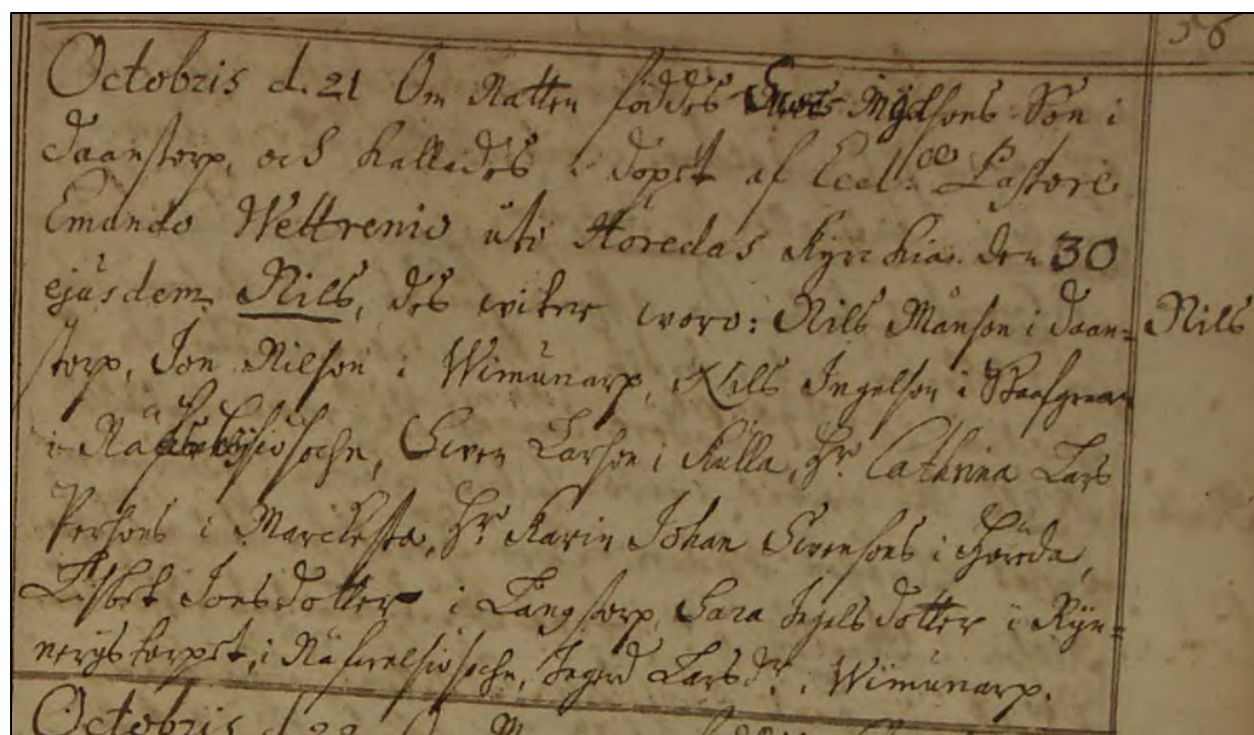 56
Octobris d. 21 Om Natten föddes Sons Son i
Daanstorp, och kallades i dopet af Eccl:æ Pastore
Emundo Wettrenio uti Höredas Kyrckia den 30
ejusdem Nils, des witer woro: Nils Månson i Daan= Nils
storp, Jon Nilson i Wimunarp, Nils Ingelson i
i sochn, Swen Larson i Kulla, Hr Cathrina Lars
Persons i Marckesta, Hr Karin Johan Swensons i Höreda,
Lisbet Jonsdotter i Langstorp, Sara Ingelsdotter i Ryn=
nerystorpet, i Näfwelsiösochn, Ingerd Larsdr i Wimunarp.
Octobris d. 22 Om